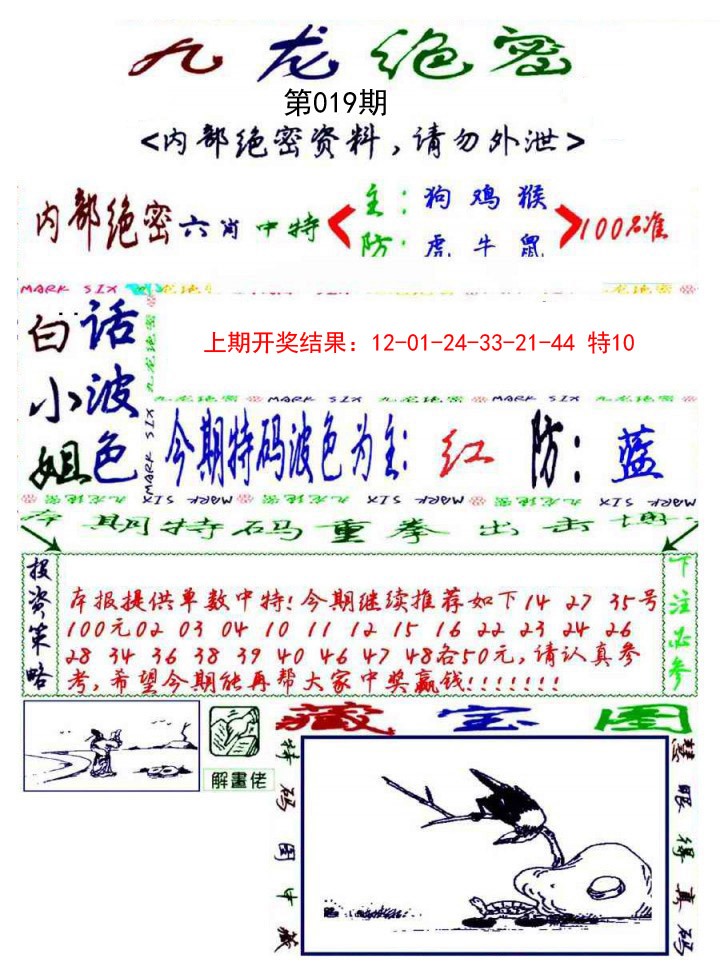 九龙绝密
第019期
<内部绝密资料,请勿外泄>
内部绝密六肖中特
主:狗 鸡 猴
防:虎 牛 鼠
100%准
MARK SIX 九龙绝密
白话小波姐色
上期开奖结果：12-01-24-33-21-44 特10
九龙绝密 MARK SIX 九龙绝密 MARK SIX 九龙绝密
今期特码波色为主:红 防:蓝
九龙绝密 MARK SIX 九龙绝密 MARK SIX 九龙绝密 MARK SIX
本期特码重拳出击
投资策略
本报提供单数中特!今期继续推荐如下14 27 35号
100元02 03 04 10 11 12 15 16 22 23 24 26
28 34 36 38 39 40 46 47 48各50元,请认真参
考,希望今期能再帮大家中奖赢钱!!!!!!!
下注必参
解畫佬
藏宝图
特码图中藏
慧眼得真码